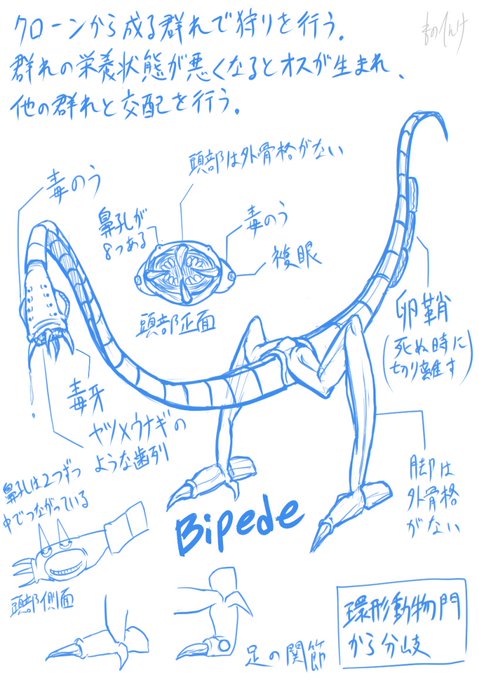 クローンから成る群れで狩りを行う。
群れの栄養状態が悪くなるとオスが生まれ、
他の群れと交配を行う。
頭部は外骨格がない
毒のう
鼻孔が
8つある
毒のう
複眼
頭部正面
卵鞘
(死ぬ時に
切り離す)
毒牙
ヤツメウナギの
ような歯列
鼻孔は2つずつ
中でつながっている
脚は
外骨格
がない
Bipede
頭部側面
足の関節
環形動物門
から分岐